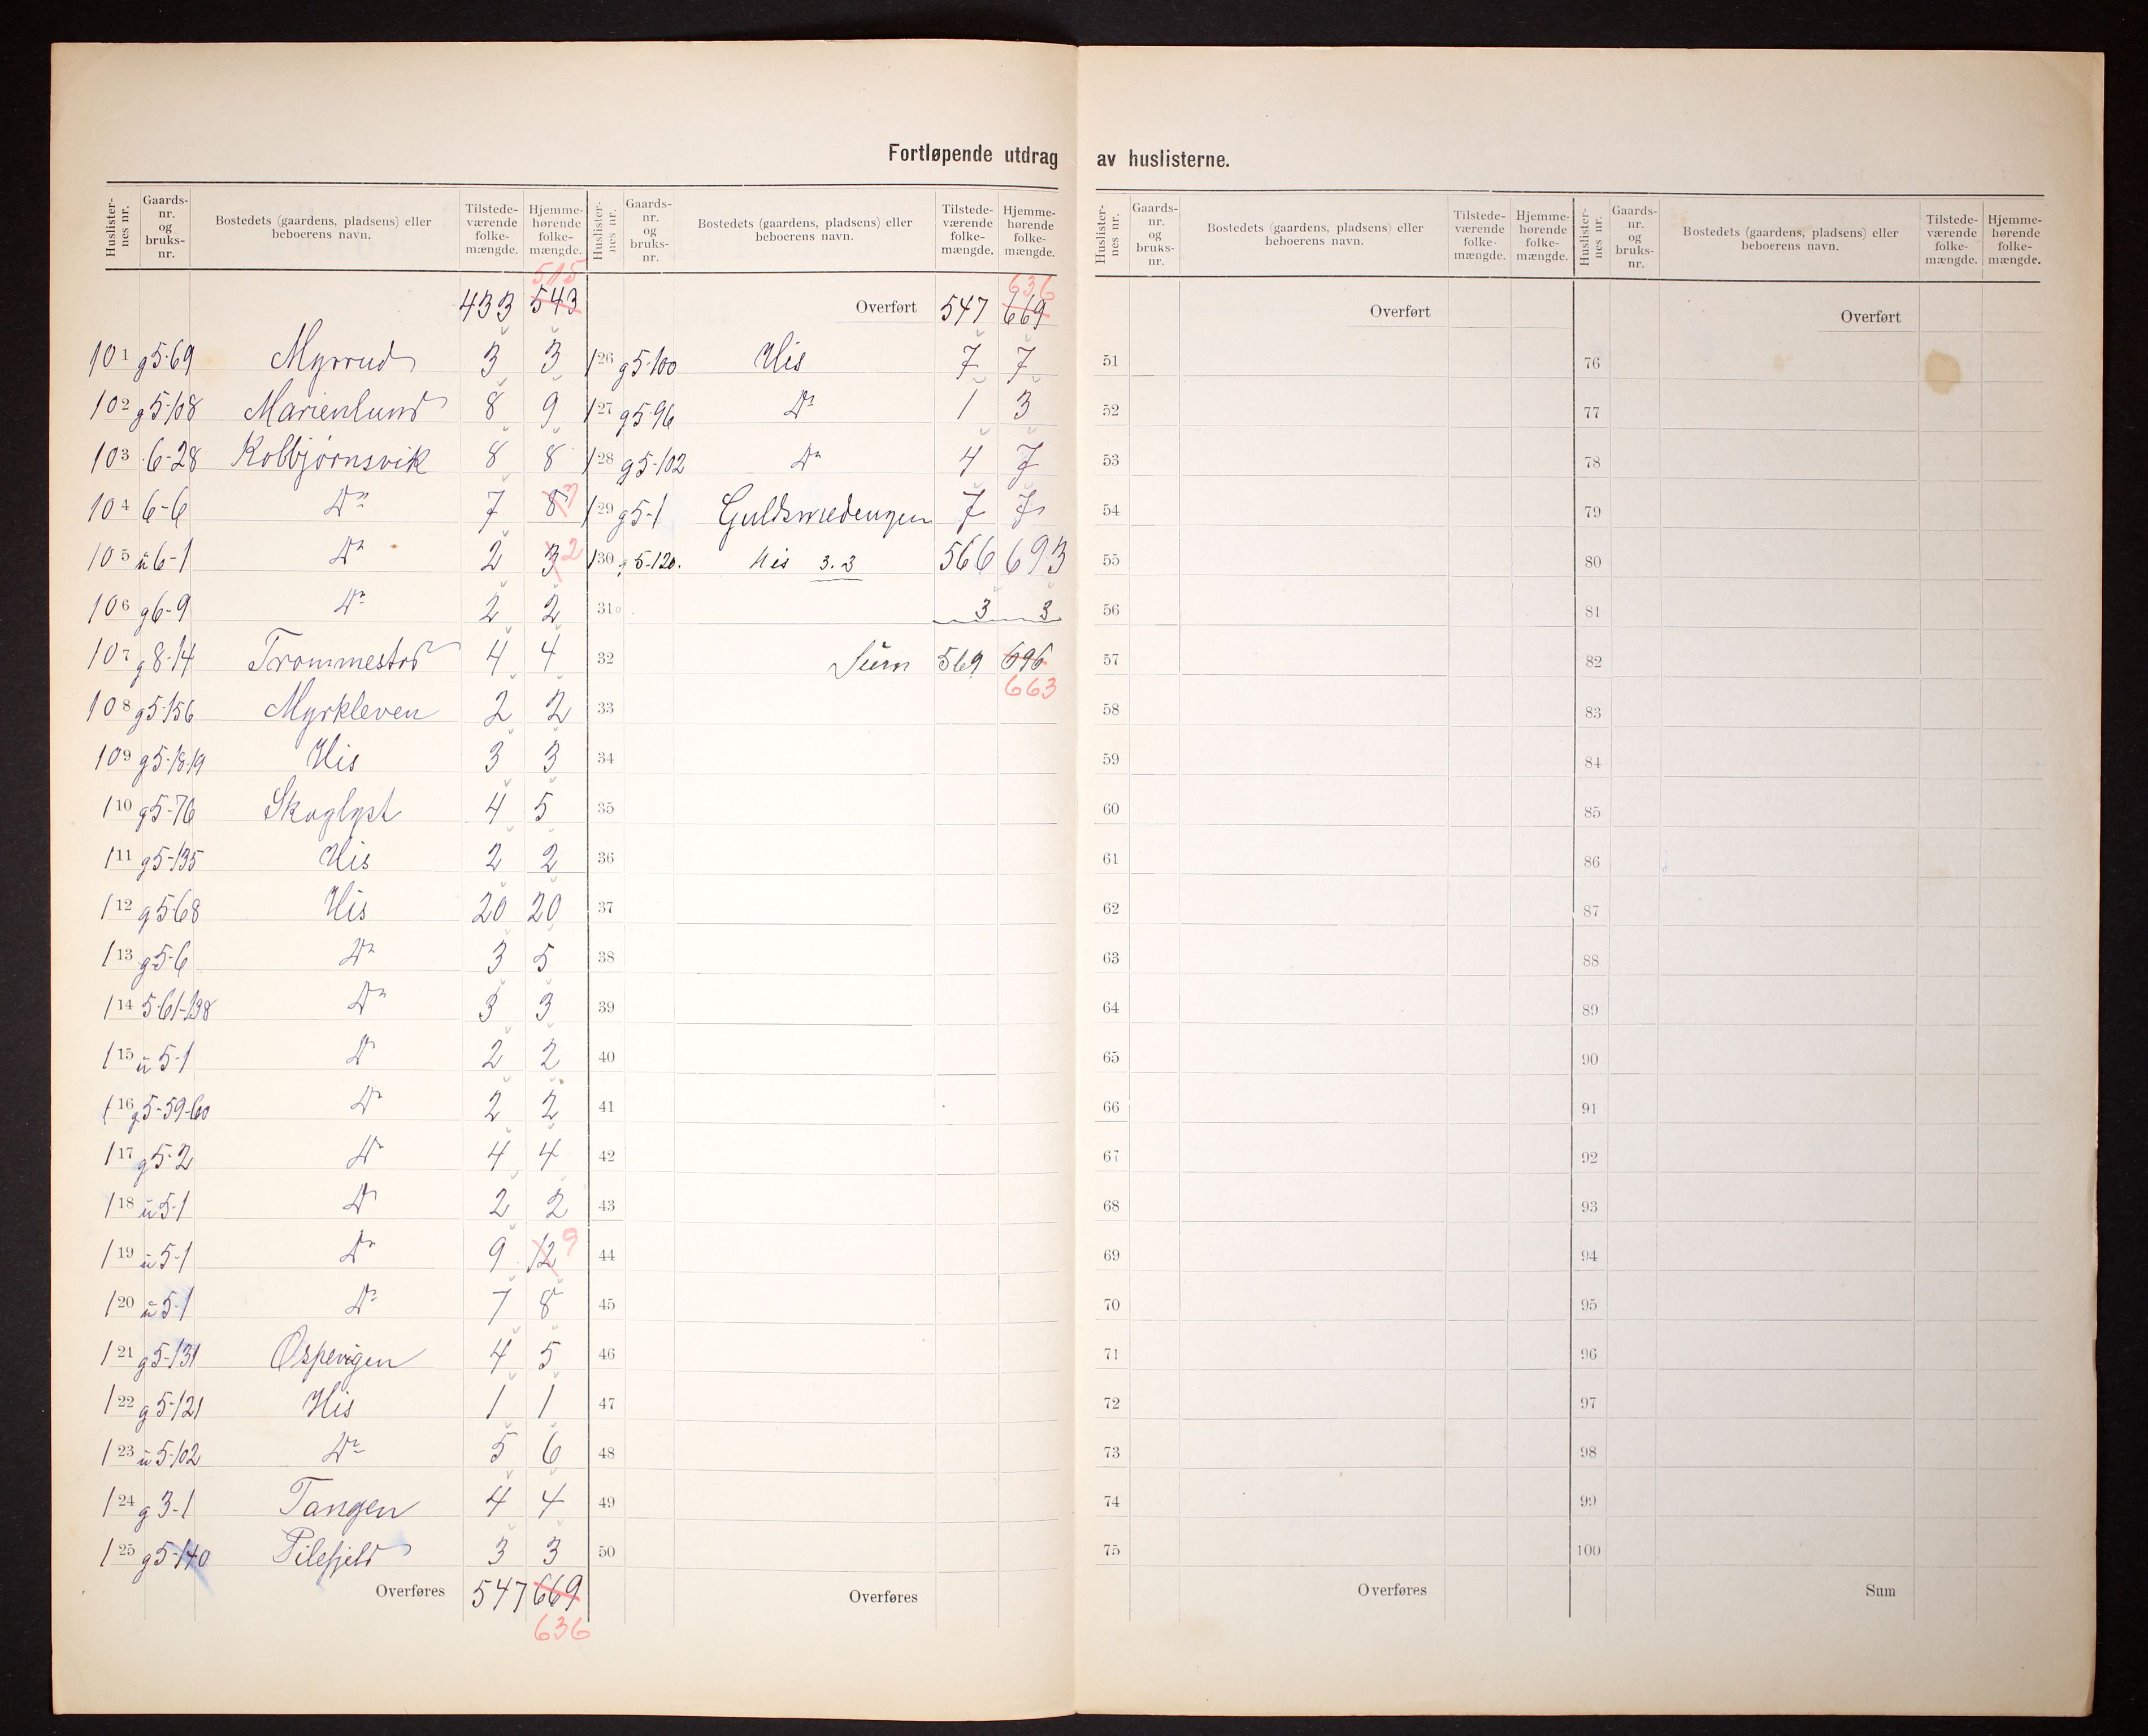 Fortløpende utdrag av huslisterne.
Huslisternes nr. Gaards-nr. og bruks-nr. Bostedets (gaardens, pladsens) eller beboerens navn. Tilstedeværende folkemængde. Hjemmehørende folkemængde.
515
433 543
101 g5-69 Myrrud 3 3
102 g5-108 Marienlund 8 9
103 6-28 Kolbjørnsvik 8 8
104 6-6 Do 7 8 7
105 u6-1 Do 2 3 2
106 g6-9 Do 2 2
107 g8-14 Trommestad 4 4
108 g5-156 Myrkleven 2 2
109 g5-18-19 His 3 3
110 g5-76 Skoglyst 4 5
111 g5-135 His 2 2
112 g5-68 His 20 20
113 g5-6 Do 3 5
114 5-61-138 Do 3 3
115 u5-1 Do 2 2
116 g5-59-60 Do 2 2
117 g5-2 Do 4 4
118 u5-1 Do 2 2
119 u5-1 Do 9 12 9
120 u5-1 Do 7 8
121 g5-131 Ospevigen 4 5
122 g5-121 His 1 1
123 u5-102 Do 5 6
124 g3-1 Tangen 4 4
125 g5-140 Pilefjeld 3 3
Overføres 547 669
636
Huslisternes nr. Gaards-nr. og bruks-nr. Bostedets (gaardens, pladsens) eller beboerens navn. Tilstedeværende folkemængde. Hjemmehørende folkemængde.
636
Overført 547 669
126 g5-100 His 7 7
127 g5-96 Do 1 3
128 g5-102 Do 4 7
129 g5-1 Guldsmedengen 7 7
130 g5-120. His 3.3 566 693
31 3 3
32 Sum 569 696
663
33
34
35
36
37
38
39
40
41
42
43
44
45
46
47
48
49
50
Overføres
Huslisternes nr. Gaards-nr. og bruks-nr. Bostedets (gaardens, pladsens) eller beboerens navn. Tilstedeværende folkemængde. Hjemmehørende folkemængde.
Overført
51
52
53
54
55
56
57
58
59
60
61
62
63
64
65
66
67
68
69
70
71
72
73
74
75
Overføres
Huslisternes nr. Gaards-nr. og bruks-nr. Bostedets (gaardens, pladsens) eller beboerens navn. Tilstedeværende folkemængde. Hjemmehørende folkemængde.
Overført
76
77
78
79
80
81
82
83
84
85
86
87
88
89
90
91
92
93
94
95
96
97
98
99
100
Sum